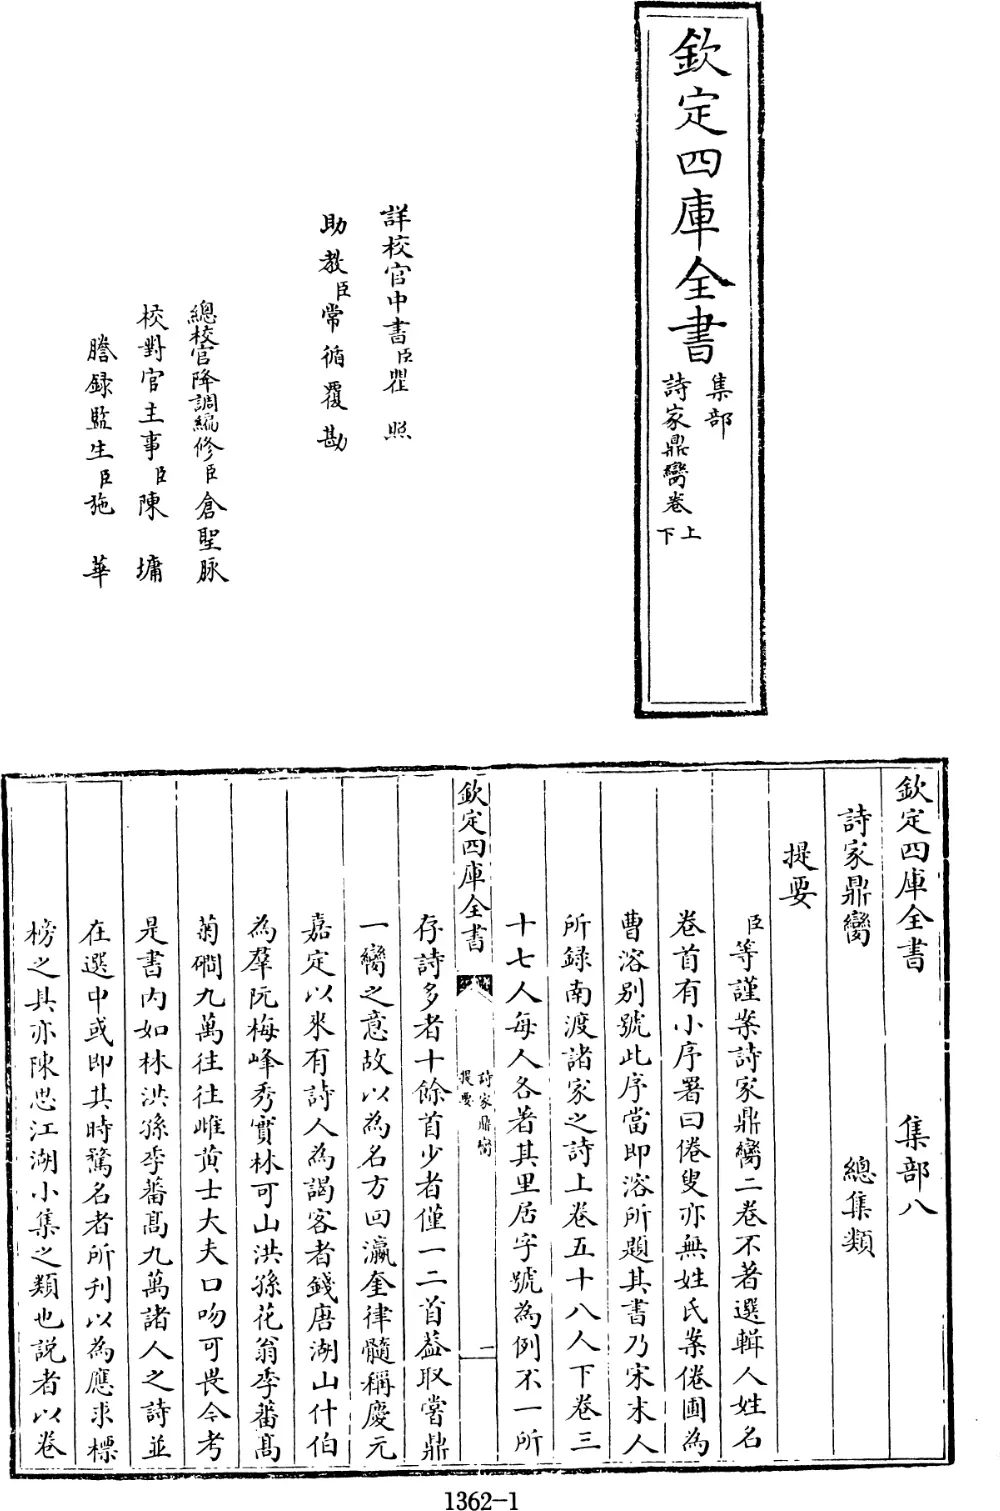 欽定四庫全書
集部
詩家鼎臠卷上
下
詳校官中書臣瞿照
助教臣常循覆勘
總校官降調編修臣倉聖脉
校對官主事臣陳墉
謄録監生臣施華
欽定四庫全書 集部八
詩家鼎臠 總集類
提要
臣等謹案詩家鼎臠二卷不著選輯人姓名
卷首有小序署曰倦叟亦無姓氏案倦圃為
曹溶别號此序當即溶所題其書乃宋末人
所録南渡諸家之詩上卷五十八人下卷三
十七人每人各著其里居字號為例不一所
欽定四庫全書
詩家鼎臠
提要
一
存詩多者十餘首少者僅一二首葢取嘗鼎
一臠之意故以為名方回瀛奎律髓稱慶元
嘉定以來有詩人為謁客者錢唐湖山什伯
為羣阮梅峰秀實林可山洪孫花翁季蕃髙
菊磵九萬往往雌黄士大夫口吻可畏今考
是書内如林洪孫季蕃髙九萬諸人之詩並
在選中或即其時騖名者所刊以為應求標
榜之具亦陳思江湖小集之類也説者以卷
1362-1